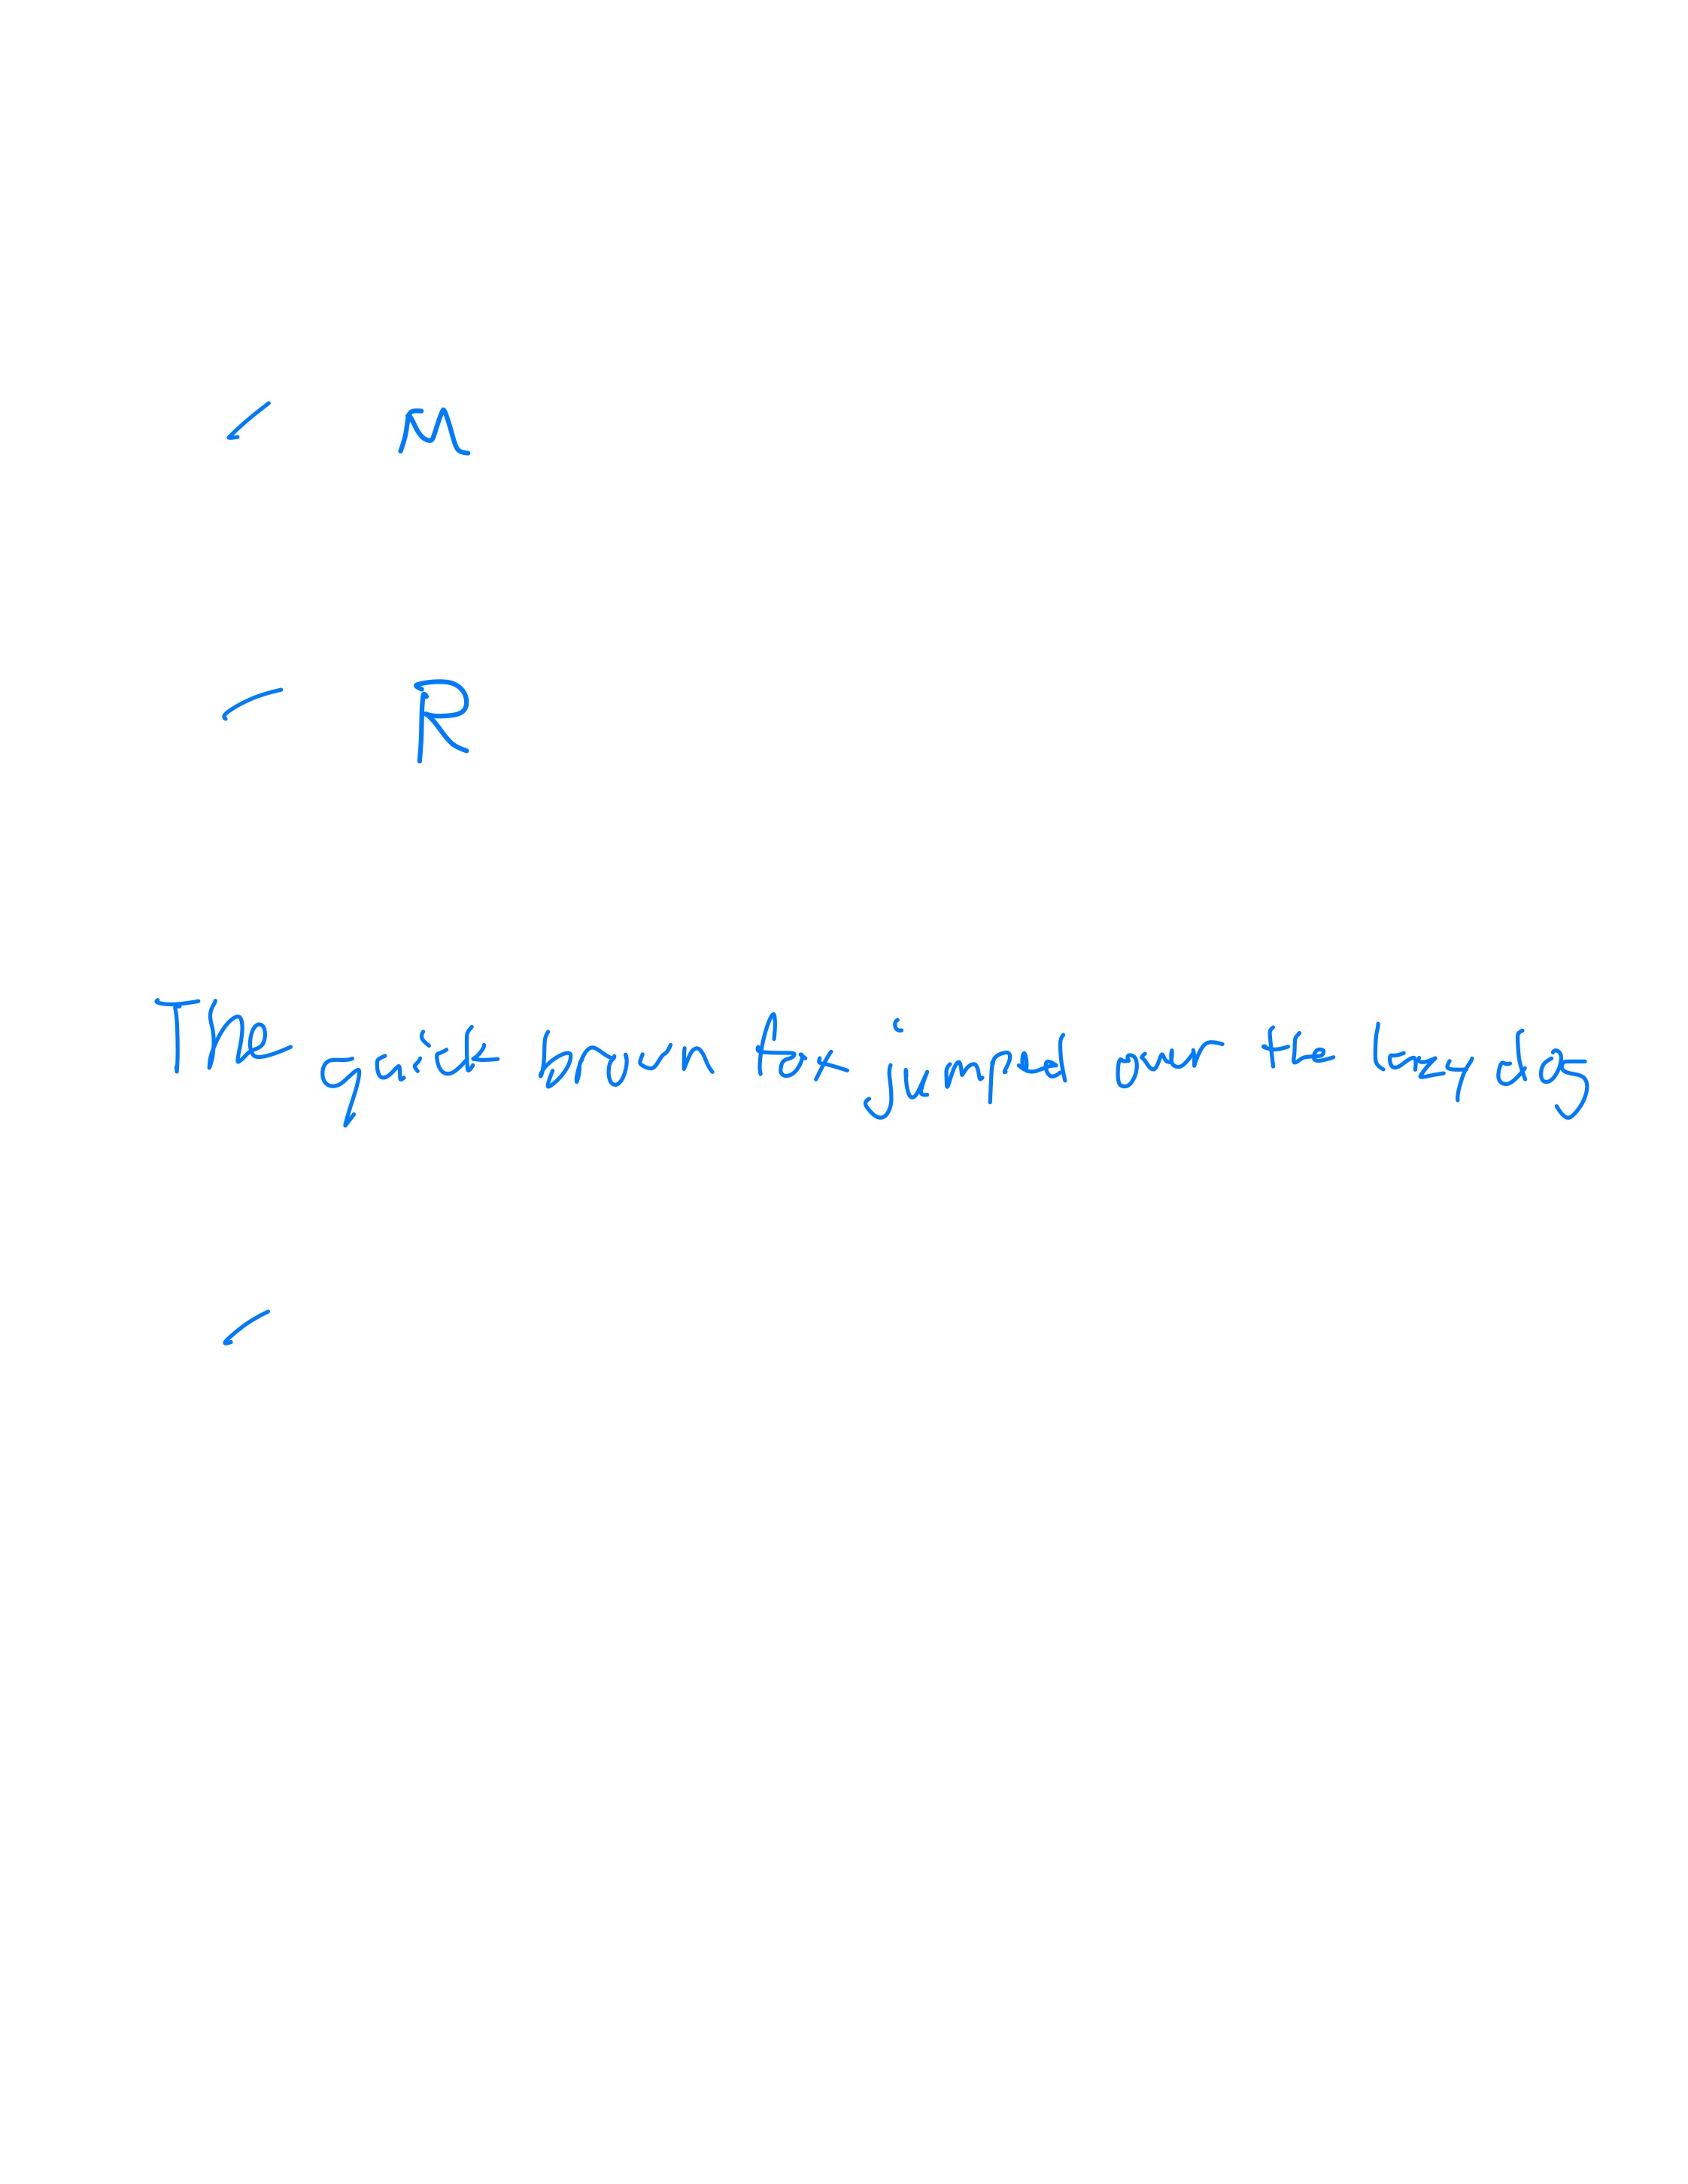 - M
- R
The quick brown fox jumped over the lazy dog
-